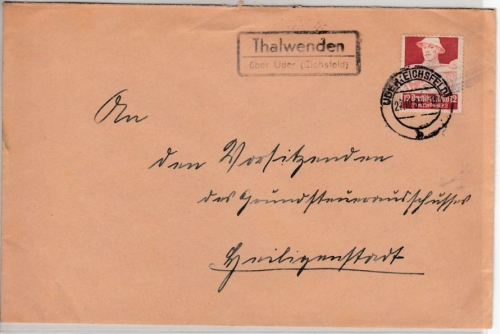 Thalwenden
über Uder (Eichsfeld)
UDER (EICHSFELD)
An
den Vorsitzenden
des Grundsteuerausschusses
Heiligenstadt